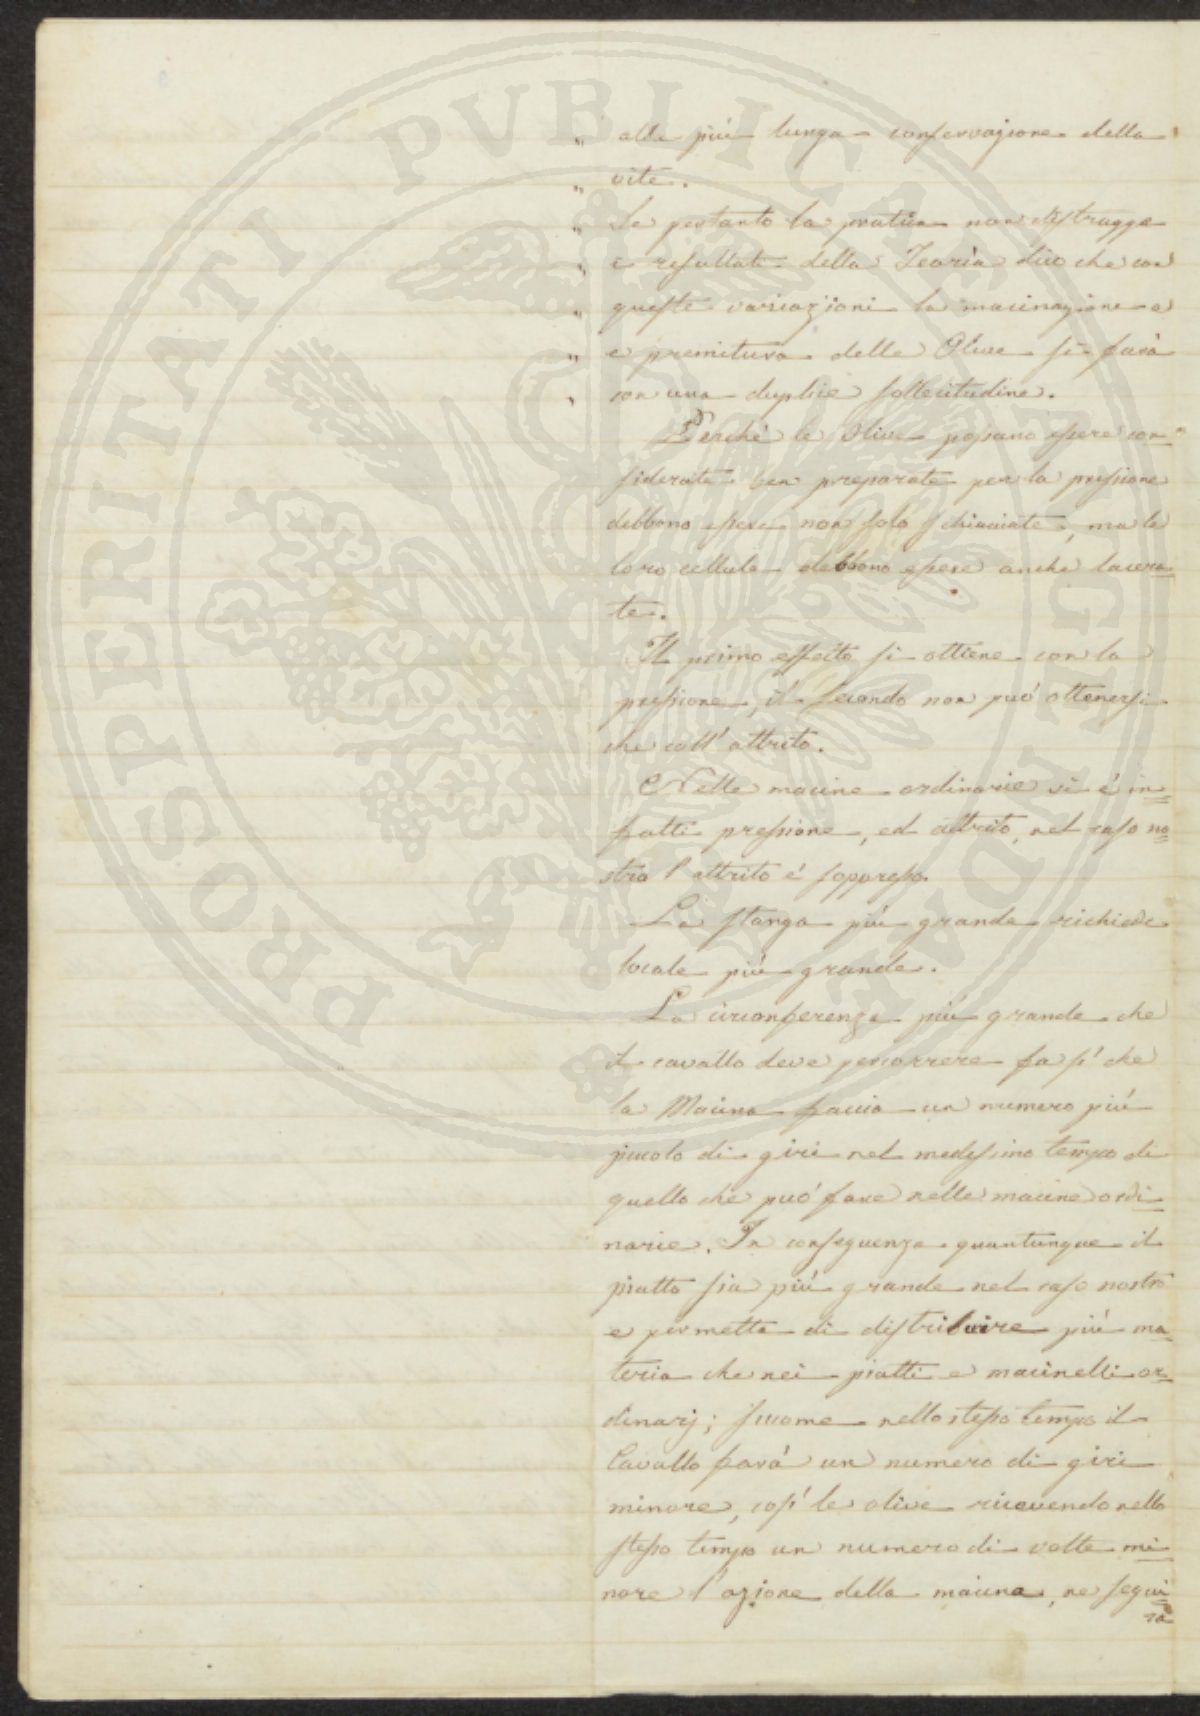 „ alla più lunga conservazione della
„ vite.
„ Se pertanto la pratica non distrugge
„ i resultati della Teoria dico che con
„ queste variazioni la macinazione e
„ e premitura delle Olive si farà
„ con una duplice sollecitudine.
Perché le Olive possano essere con=
siderate ben preparate per la pressione
debbono essere non solo schiacciate, ma le
loro cellule debbono essere anche lacera=
te.
Il primo effetto si ottiene con la
pressione, il secondo non può ottenersi
che coll'attrito.
Nelle macine ordinarie vi é in=
fatti pressione, ed attrito, nel caso no=
stro l'attrito é soppresso.
La stanga più grande richiede
locale più grande.
La circonferenza più grande che
il cavallo deve percorrere fa sì che
la Macina faccia un numero più
piccolo di giri nel medesimo tempo di
quello che può fare nelle macine ordi=
narie. In conseguenza quantunque il
piatto sia più grande nel caso nostro
e permetta di distribuire più ma=
teria che nei piatti e macinelli or=
dinarj; siccome nello stesso tempo il
Cavallo farà un numero di giri
minore, così le olive ricevendo nello
stesso tempo un numero di volte mi=
nore l'azione della macina, ne segui=
rà
PROSPERITATI PUBLICAE AUGENDAE